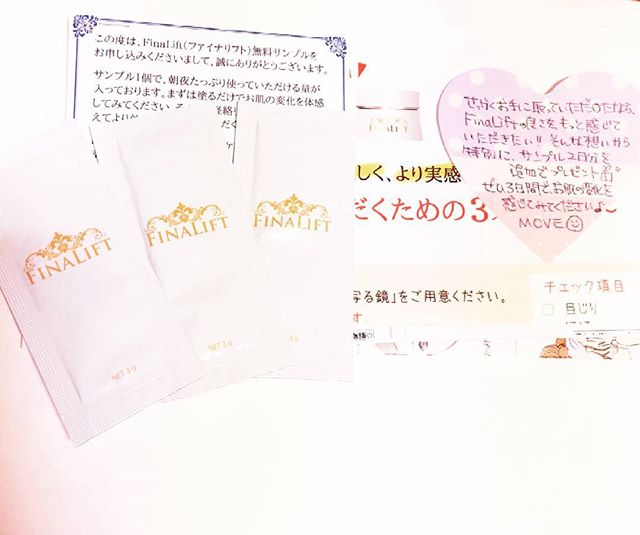 この度は、FinaLift(ファイナリフト)無料サンプルを
お申し込みくださいまして、誠にありがとうございます。
サンプル1個で、朝夜たっぷり使っていただける量が
入っております。まずは塗るだけでお肌の変化を体感
してみてください
FINALIFT
せっかくお手に取っていただけたなら、
FinaLiftの良さを、もっと感じて
いただきたい!! そんな想いから
特別に、サンプル2日分を
追加でプレゼント
ぜひ3日間で、お肌の変化を
感じてみてください♪
MOVE
しく、より実感
だくための3
写る鏡」をご用意ください。
す。
チェック項目
□ 目じり
FINALIFT
NET 3g
FINALIFT
NET 3g
FINALIFT
3g